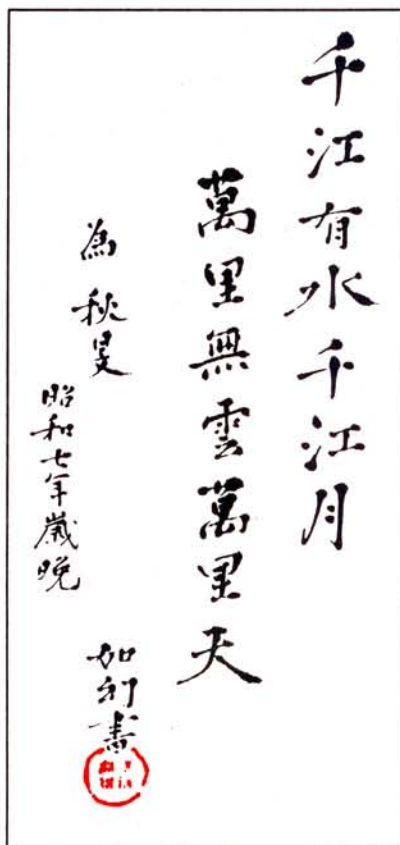 千江有水千江月
萬里無雲萬里天
為 秋旻
昭和七年歲晚
加利書